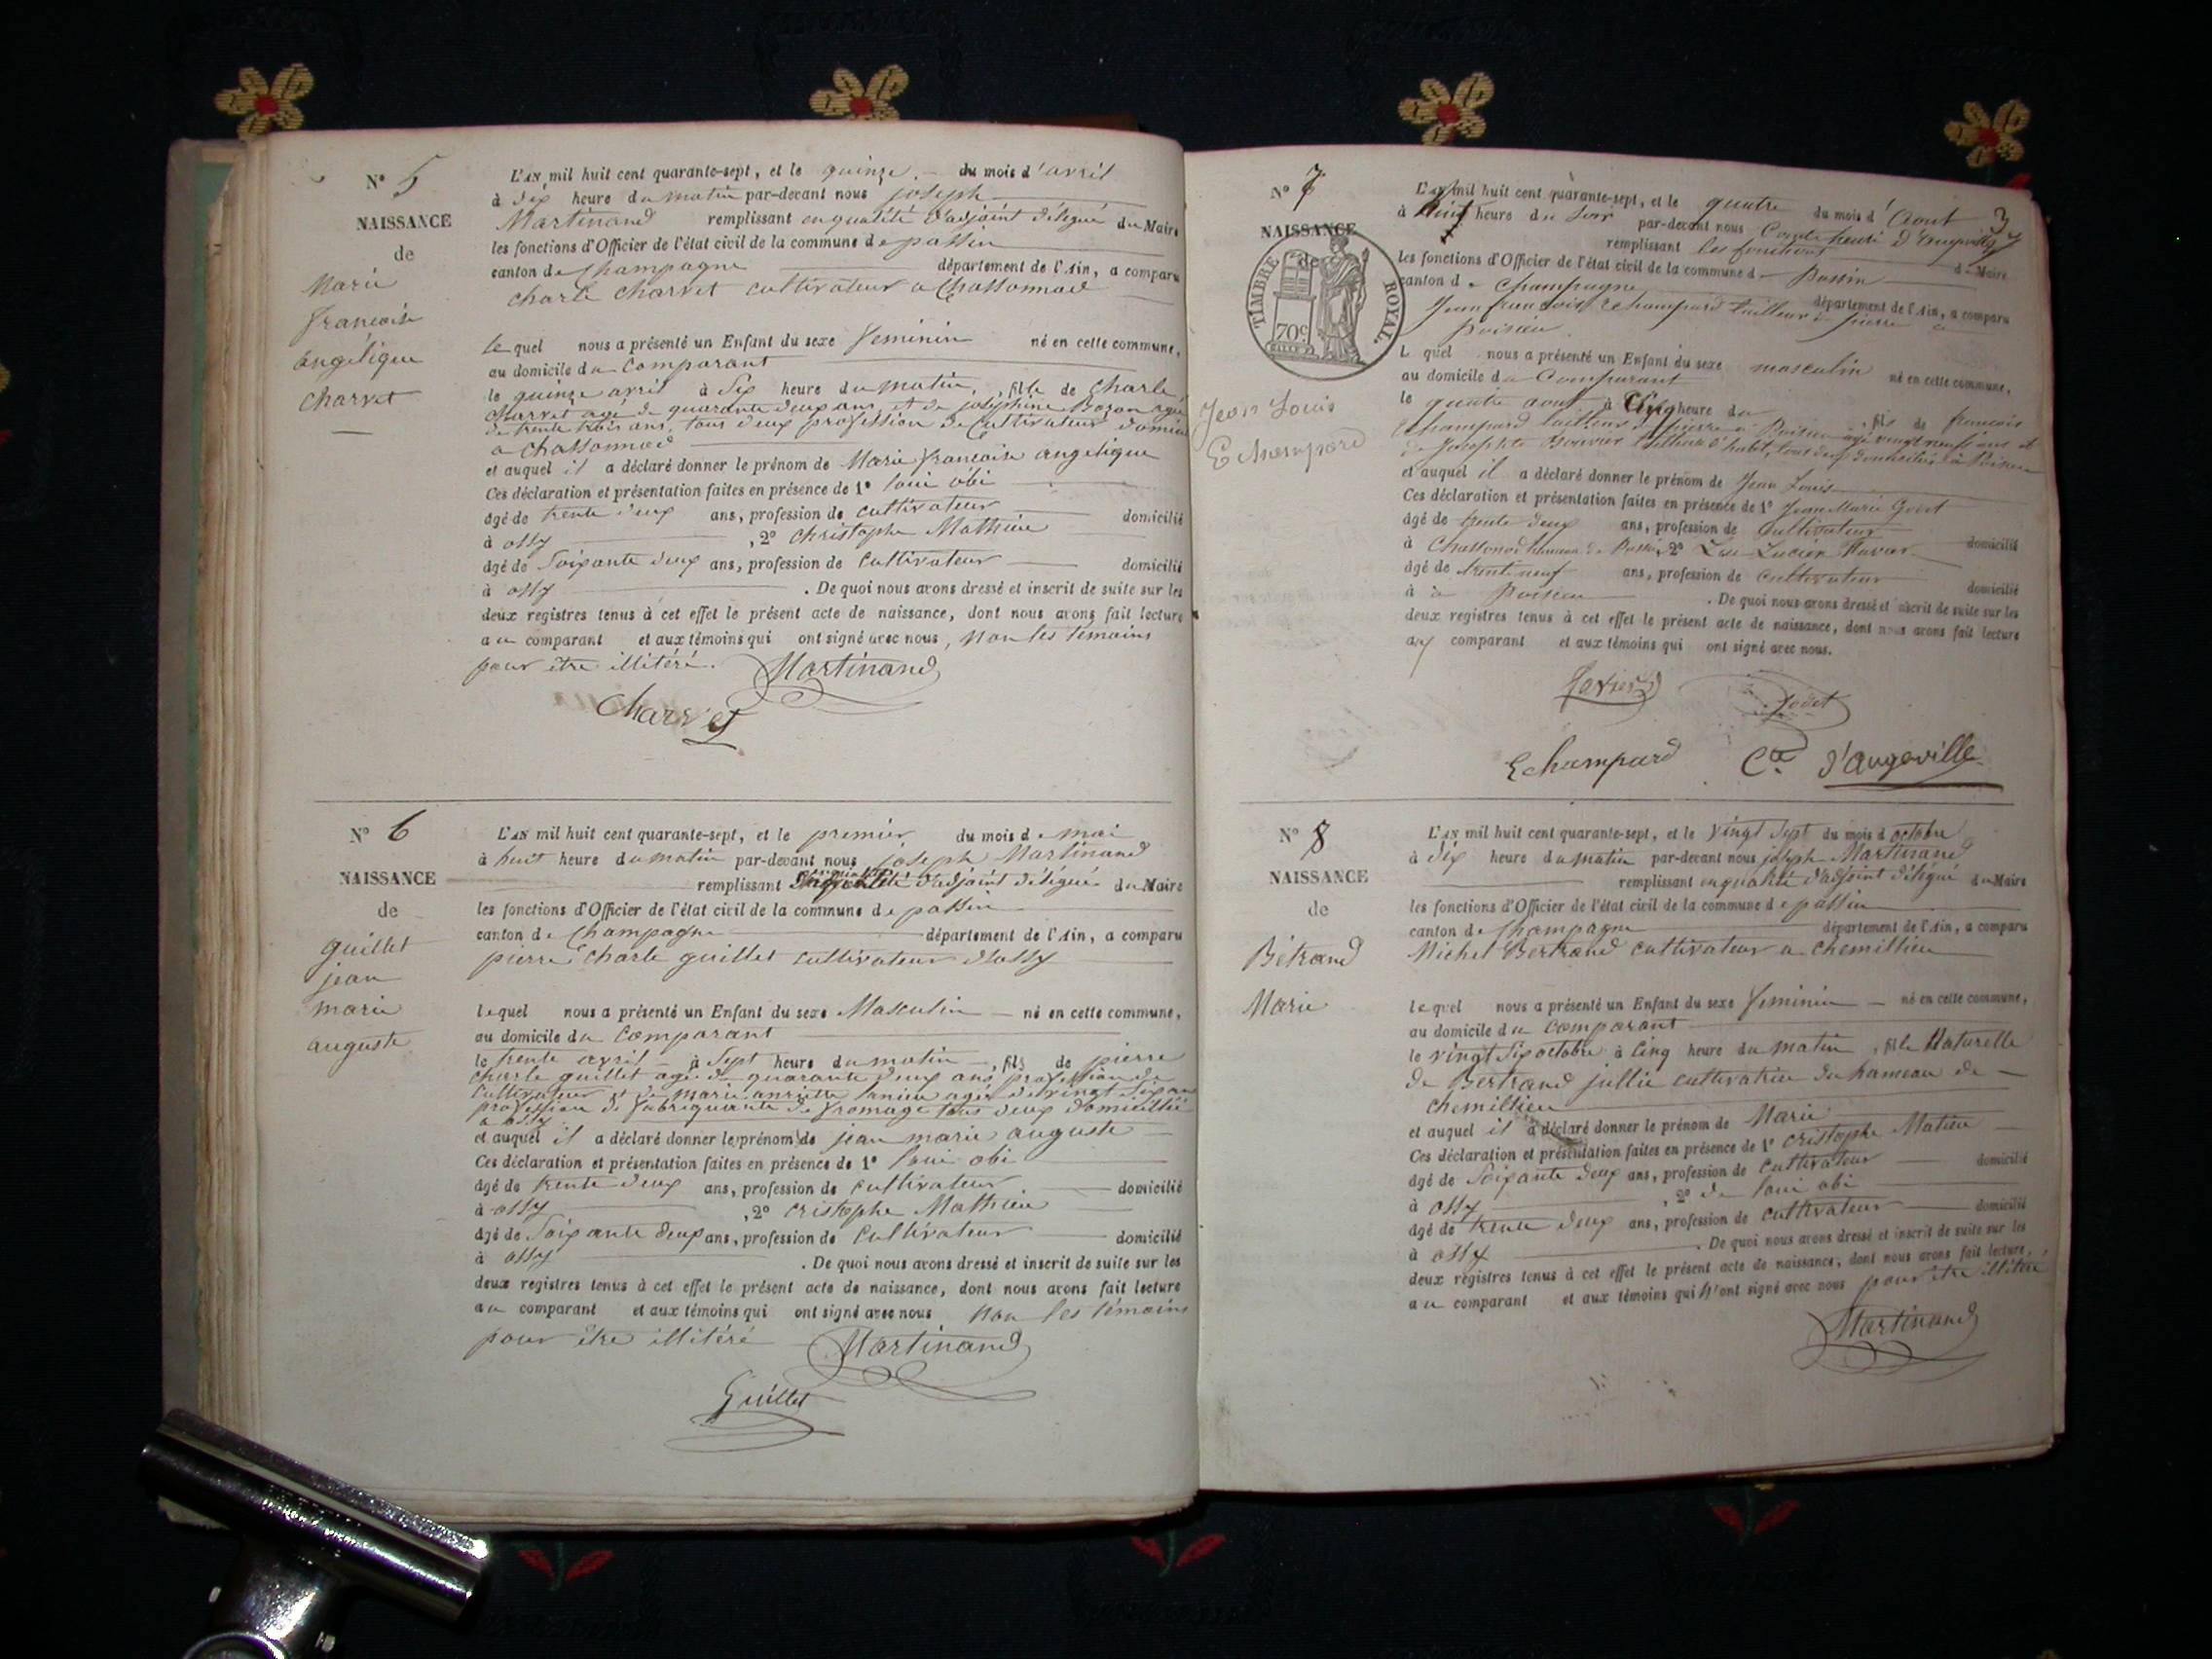 N° 5
NAISSANCE
de
Marie
francoise
angélique
Charvet
L'AN mil huit cent quarante-sept, et le quinze du mois d'avril
à dix heure du matin par-devant nous joseph
Martinand remplissant en qualité d'adjoint délégué du Maire
les fonctions d'Officier de l'état civil de la commune de passin
canton de Champagne département de l'Ain, a comparu
Charle Charvet cultivateur a Chassonnod
lequel nous a présenté un Enfant du sexe feminin né en cette commune,
au domicile du Comparant
le quinze avril à six heure du matin, fille de Charle
Charvet agé de quarante deux ans et de joséphine Bozon agée
de trente trois ans, tous deux profession de Cultivateur domicilié
a Chassonnod
et auquel il a déclaré donner le prénom de Marie francoise angelique
Ces déclaration et présentation faites en présence de 1° loui obi
âgé de trente deux ans, profession de cultivateur domicilié
à ossy , 2° christophe Mathieu
âgé de Soixante deux ans, profession de Cultivateur domicilié
à ossy . De quoi nous avons dressé et inscrit de suite sur les
deux registres tenus à cet effet le présent acte de naissance, dont nous avons fait lecture
au comparant et aux témoins qui ont signé avec nous, non les témoins
pour être illitéré. Martinand
Charvet
N° 6
NAISSANCE
de
guillet
jean
marie
auguste
L'AN mil huit cent quarante-sept, et le premier du mois de mai
à huit heure du matin par-devant nous joseph Martinand
remplissant en qualité d'adjoint délégué du Maire
les fonctions d'Officier de l'état civil de la commune de passin
canton de Champagne département de l'Ain, a comparu
pierre Charle guillet cultivateur d'ossy
lequel nous a présenté un Enfant du sexe Masculin né en cette commune,
au domicile du Comparant
le trente avril à Sept heure du matin, fils de pierre
Charle guillet agé de quarante deux ans profession de
Cultivateur et de marie agée de vingt six ans
profession de fabriquante de fromage tous deux domicilié
a ossy
et auquel il a déclaré donner le prénom de jean marie auguste
Ces déclaration et présentation faites en présence de 1° loui obi
âgé de trente deux ans, profession de Cultivateur domicilié
à ossy , 2° cristophe Mathieu
âgé de Soixante deux ans, profession de Cultivateur domicilié
à ossy . De quoi nous avons dressé et inscrit de suite sur les
deux registres tenus à cet effet le présent acte de naissance, dont nous avons fait lecture
au comparant et aux témoins qui ont signé avec nous non les témoins
pour être illitéré Martinand
Guillet
N° 7
NAISSANCE
de
TIMBRE ROYAL.
70c
Jean Louis
Echampard
L'AN mil huit cent quarante-sept, et le quatre du mois d'Aout 3
à huit heure du Soir par-devant nous Comte henri D'Angeville
remplissant les fonctions
les fonctions d'Officier de l'état civil de la commune d Passin d Maire
canton de Champagne département de l'Ain, a comparu
Jean francois Echampard tailleur de pierre a
Poisieu
L quel nous a présenté un Enfant du sexe masculin né en cette commune,
au domicile du Comparant
le quatre aout à Cinq heure du , fils de francois
Echampard tailleur de pierre a Poisieu agé vingt neuf ans et
de Josephte tailleuse d'habit, tout deux domiciliés à Poisieu
et auquel il a déclaré donner le prénom de Jean Louis
Ces déclaration et présentation faites en présence de 1° Jean Marie Godet
âgé de trente deux ans, profession de Cultivateur domicilié
à Chassonod hameau de Passin, 2° Lucien
âgé de trente neuf ans, profession de cultivateur domicilié
à a Poisieu . De quoi nous avons dressé et inscrit de suite sur les
deux registres tenus à cet effet le présent acte de naissance, dont nous avons fait lecture
au comparant et aux témoins qui ont signé avec nous.
Godet
Echampard Cte d'Angeville
N° 8
NAISSANCE
de
Bétrand
Marie
L'AN mil huit cent quarante-sept, et le vingt Sept du mois d octobre
à dix heure du matin par-devant nous joseph Martinand
remplissant en qualité d'adjoint délégué du Maire
les fonctions d'Officier de l'état civil de la commune de passin
canton de Champagne département de l'Ain, a comparu
Michel Bertrand cultivateur a chemillieu
lequel nous a présenté un Enfant du sexe feminin né en cette commune,
au domicile du comparant
le vingt Six octobre à Cinq heure du matin, fille Naturelle
de Bertrand jullie cultivatrice du hameau de
chemillieu
et auquel il a déclaré donner le prénom de Marie
Ces déclaration et présentation faites en présence de 1° Cristophe Matieu
âgé de Soixante deux ans, profession de Cultivateur domicilié
à ossy , 2° de loui obi
âgé de trente deux ans, profession de Cultivateur domicilié
à ossy . De quoi nous avons dressé et inscrit de suite sur les
deux registres tenus à cet effet le présent acte de naissance, dont nous avons fait lecture,
au comparant et aux témoins qui n'ont signé avec nous pour être illitéré
Martinand